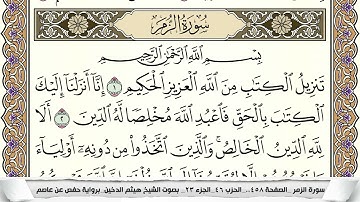 سُورَةُ الزُّمَرِ
بِسْمِ اللَّهِ الرَّحْمَٰنِ الرَّحِيمِ
تَنزِيلُ الْكِتَٰبِ مِنَ اللَّهِ الْعَزِيزِ الْحَكِيمِ ١ إِنَّآ أَنزَلْنَآ إِلَيْكَ
الْكِتَٰبَ بِالْحَقِّ فَاعْبُدِ اللَّهَ مُخْلِصًا لَّهُ الدِّينَ ٢ أَلَا
لِلَّهِ الدِّينُ الْخَالِصُ وَالَّذِينَ اتَّخَذُوا۟ مِن دُونِهِۦٓ أَوْلِيَآءَ
سورة الزمر ..الصفحة ٤٥٨... الحزب ٤٦ ..الجزء ٢٣ .. بصوت الشيخ هيثم الدخين. برواية حفص عن عاصم